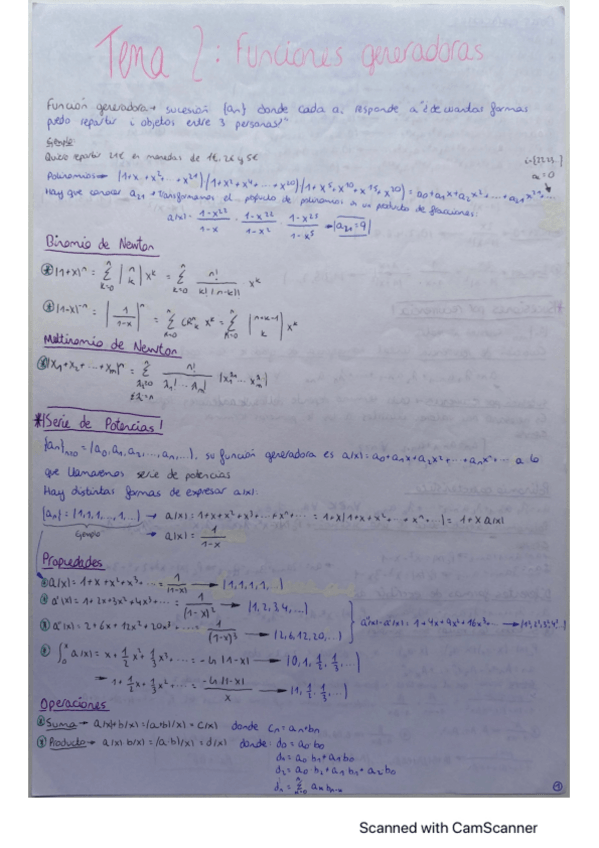 Tema 2: Funciones generadoras
Función generadora → sucesión {an} donde cada ai responde a "¿de cuantas formas
puedo repartir i objetos entre 3 personas?"
Ejemplo
Quiero repartir 21€ en monedas de 1€, 2€ y 5€
Polinomios → (1+x+x²+...+x²¹)(1+x²+x⁴+...+x²⁰)(1+x⁵+x¹⁰+x¹⁵+x²⁰) = a₀+a₁x+a₂x²+...+a₂₁x²¹+...
Hay que conocer a₂₁ → transformamos el producto de polinomios a un producto de fracciones:
a(x) = (1-x²²)/(1-x) · (1-x²²)/(1-x²) · (1-x²⁵)/(1-x⁵)
Binomio de Newton
(1+x)ⁿ = Σ_{k=0}^{n} (n k) xᵏ = Σ_{k=0}^{n} n!/(k!(n-k)!) xᵏ
(1-x)⁻ⁿ = (1/(1-x))ⁿ = Σ CRₙᵏ xᵏ = Σ (n+k-1 k) xᵏ
Multinomio de Newton
(x₁+x₂+...+xₘ)ⁿ = Σ n!/(λ₁!...λₘ!)
*¡Serie de Potencias!
{an}n≥0 = (a₀, a₁, a₂, ..., aₙ, ...), su función generadora es a(x) = a₀+a₁x+a₂x²+...+aₙxⁿ+... a lo
que llamaremos serie de potencias
Hay distintas formas de expresar a(x):
{an} = (1,1,1,...,1,...) → a(x) = 1+x+x²+x³+...+xⁿ+... = 1+x(1+x+x²+...+xⁿ+...) = 1+x a(x)
Ejemplo → a(x) = 1/(1-x)
Propiedades
a(x) = 1+x+x²+x³+... = 1/(1-x) → (1,1,1,1,...)
a'(x) = 1+2x+3x²+4x³+... = 1/(1-x)² → (1,2,3,4,...)
a''(x) = 2+6x+12x²+20x³+... = 1/(1-x)³ → (2,6,12,20,...)
a''(x)-a'(x) = 1+4x+9x²+16x³... → (1²,2²,3²,4²...)
∫₀ˣ a(x) = x+1/2 x²+1/3 x³+... = -ln(1-x) → (0,1,1/2,1/3,...)
→ 1+1/2 x+1/3 x²+... = -ln(1-x)/x → (1,1/2,1/3,...)
Operaciones
Suma → a(x)+b(x) = (a+b)(x) = c(x) donde cn = an+bn
Producto → a(x)·b(x) = (a·b)(x) = d(x) donde: d₀ = a₀b₀
d₁ = a₀b₁+a₁b₀
d₂ = a₀b₂+a₁b₁+a₂b₀
1
Scanned with CamScanner